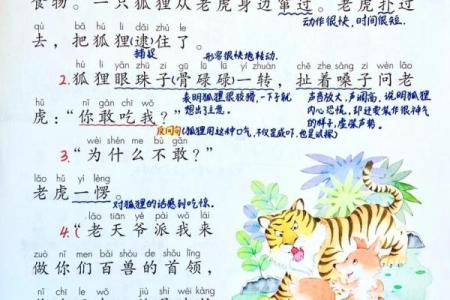 食物。一只狐狸从老虎身边窜过。老虎扑过
动作很快,时间很短。
qù bǎ hú li dǎi zhù le
去,把狐狸(逮)住了。
捕捉
形容很快地转动.
hú li yǎn zhū zi gū lù lù yì zhuàn
2.狐狸眼珠子(骨碌碌)一转,扯着嗓子问老
表明狐狸很狡猾,一下子就
想出了主意.
声音放大,声调高,说明狐狸
内心恐慌,却还要装作很神气
的样子,虚张声势。
hǔ nǐ gǎn chī wǒ
虎:“你敢吃我?”
反问句(狐狸用这种口气,不仅是威吓,也是试探)
wèi shén me bù gǎn
3.“为什么不敢?”
lǎo hǔ yí lèng
老虎一愣。
对狐狸的话感到吃惊.
lǎo tiān yé pài wǒ lái
4.“老天爷派我来
zuò nǐ men bǎi shòu de shǒu lǐng
做你们百兽的首领,